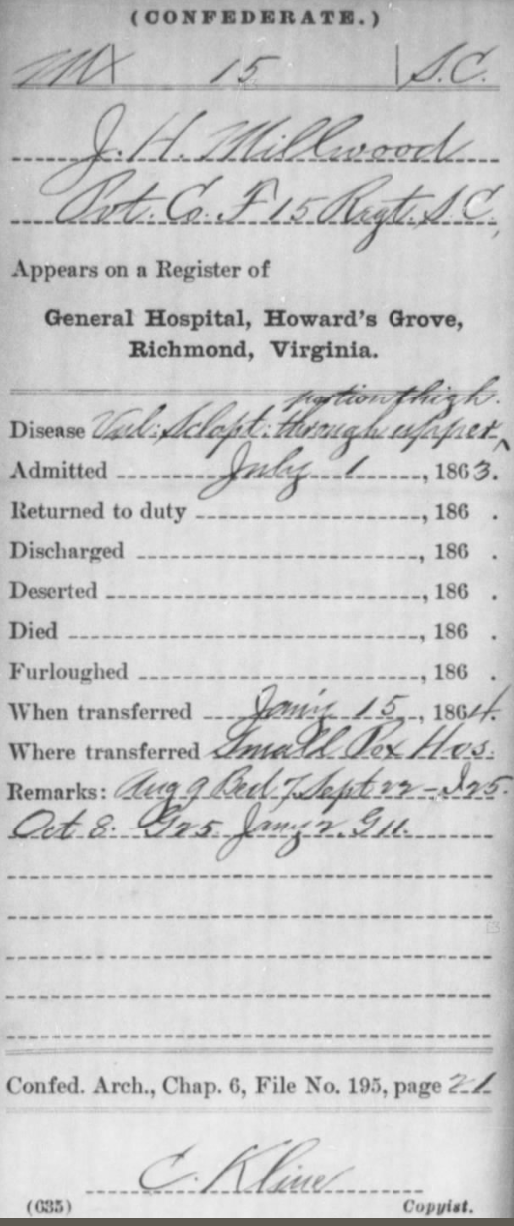 (CONFEDERATE.)
M | 15 | S.C.
J. H. Millwood
Pvt. Co. F 15 Regt. S.C.,
Appears on a Register of
General Hospital, Howard's Grove,
Richmond, Virginia.
portion thigh.
Disease Vul: Sclopt: through upper ^
Admitted July 1, 1863.
Returned to duty , 186 .
Discharged , 186 .
Deserted , 186 .
Died , 186 .
Furloughed , 186 .
When transferred Jan'y 15, 1864.
Where transferred Small Pox Hos.
Remarks: Aug 9 Bed 7, Sept 22 - I 25.
Oct 8. G25 Jany 2. G11.
Confed. Arch., Chap. 6, File No. 195, page 21
C. Kline
(635) Copyist.